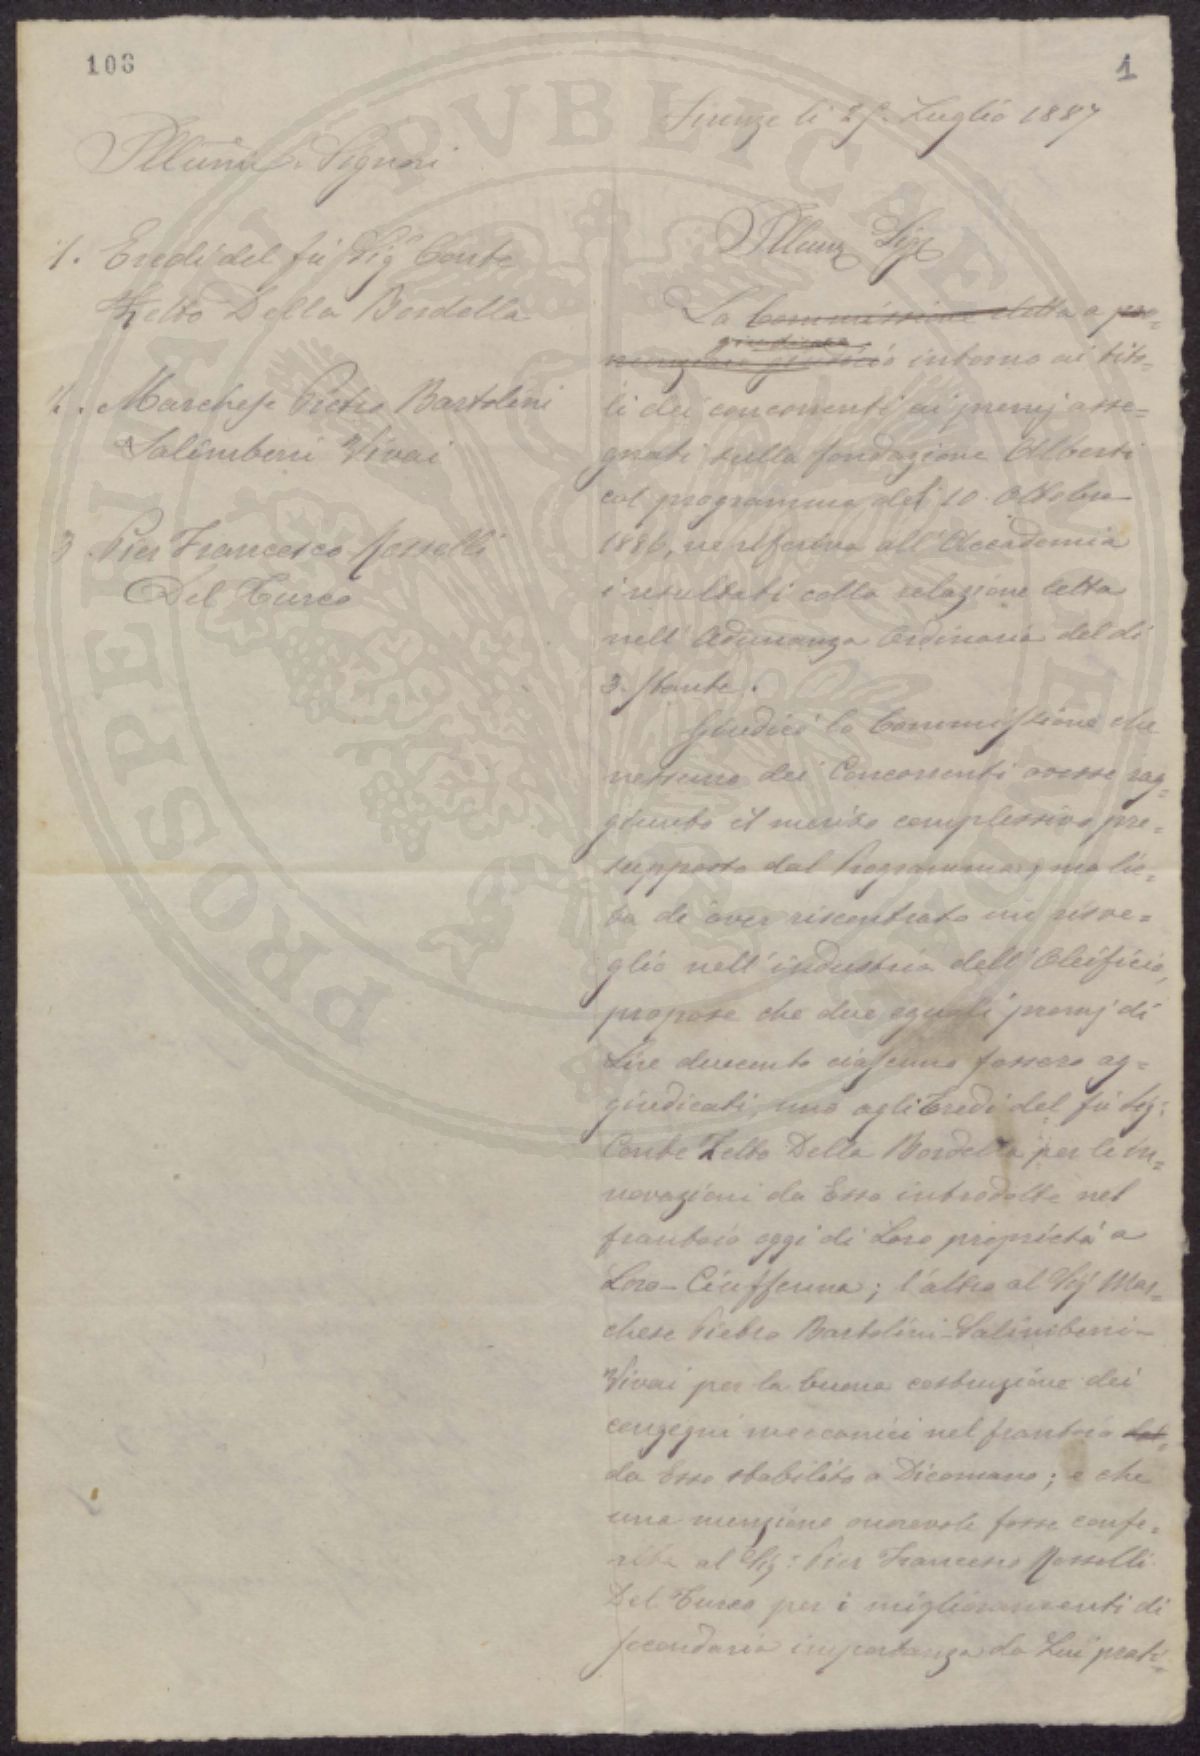 108
1
Firenze li 29. Luglio 1887
Illumi. Signori
1. Eredi del fù Sigr. Conte
Zelto Della Bordella
2. Marchese Pietro Bartolini
Salimbeni Vivai
3 Pier Francesco Rosselli
Del Turco
Illumo Sigre
La Commissione eletta a pro=
giudicare
nunziare giudizio intorno ai tito=
li dei concorrenti ai premj asse=
gnati sulla fondazione Alberti
col programma del 10. Ottobre
1886, ne riferiva all'Accademia
i resultati colla relazione letta
nell'Adunanza Ordinaria del dì
3. stante.
Giudicò la Commissione che
nessuno dei Concorrenti avesse rag=
giunto il merito complessivo pre=
supposto dal Programma; ma lie=
ta di aver riscontrato un risve=
glio nell'industria dell'Oleificio,
propose che due eguali premj di
Lire duecento ciascuno fossero ag=
giudicati, uno agli Eredi del fù Sig:
Conte Zelto Della Bordella per le in=
novazioni da Esso introdotte nel
frantoio oggi di Loro proprietà a
Loro-Ciuffenna; l'altro al Sigr Mar=
chese Pietro Bartolini-Salimbeni-
Vivai per la buona costruzione dei
congegni meccanici nel frantoio
da Esso stabilito a Dicomano; e che
una menzione onorevole fosse confe=
rita al Sig:r Pier Francesco Rosselli
Del Turco per i miglioramenti di
secondaria importanza da Lui prati=